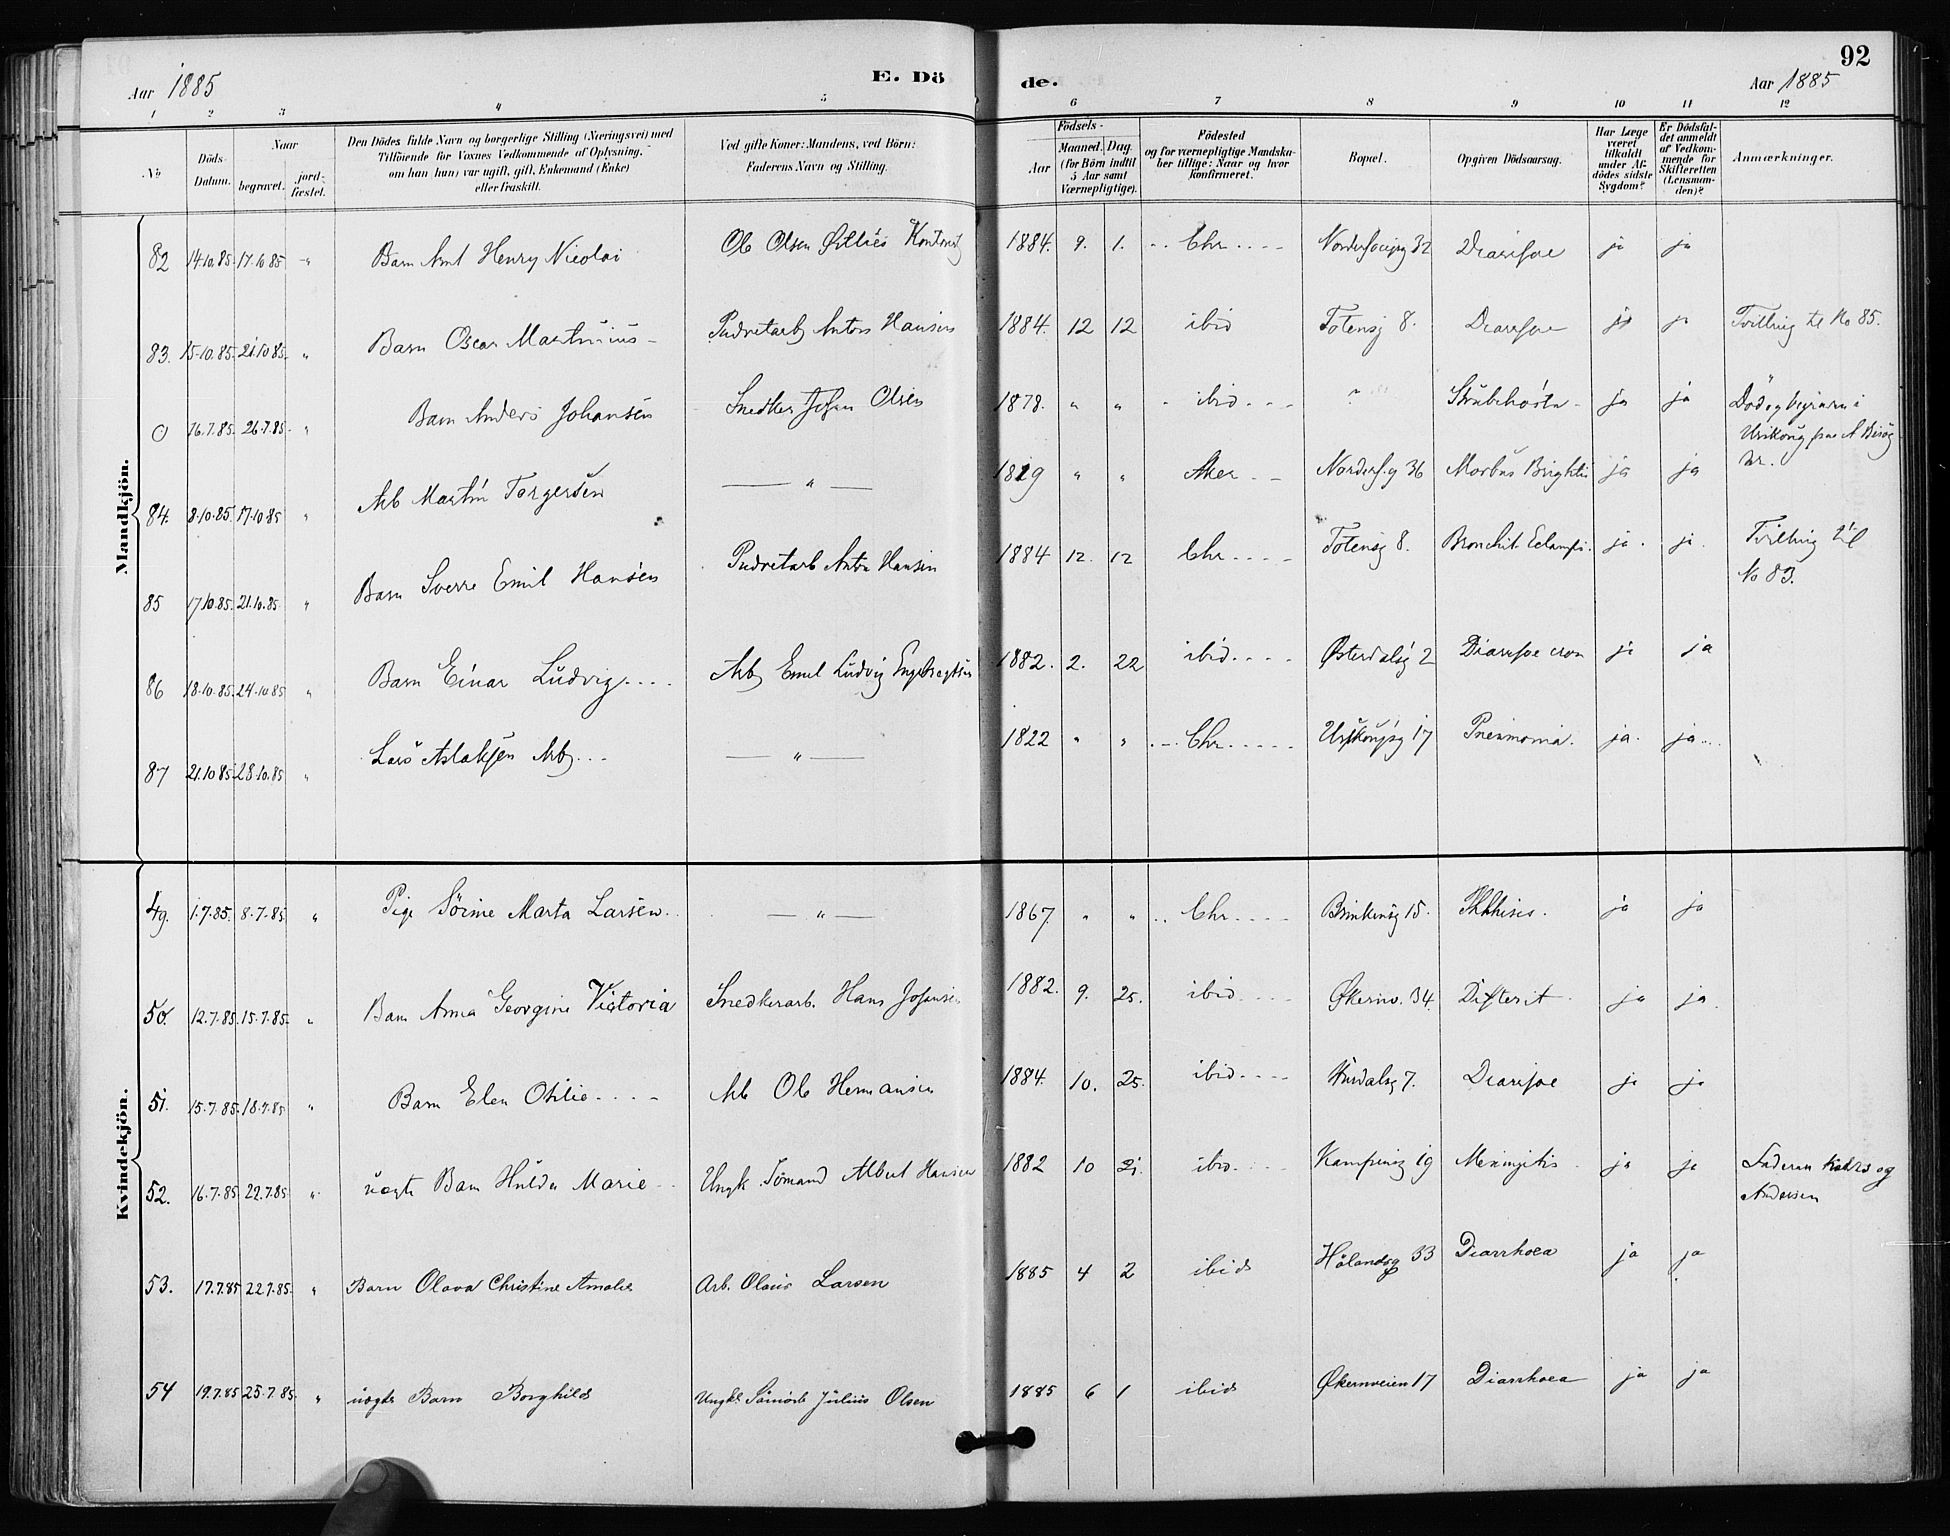 92
Aar 1885
E. Dö
de.
Aar 1885
1 2 3 4 5 6 7 8 9 10 11 12
No
Döds-Datum.
Naar
begravet.
jord-fæstet.
Den Dödes fulde Navn og borgerlige Stilling (Næringsvei) med
Tilföiende for Voxnes Vedkommende af Oplysning,
om han (hun) var ugift, gift, Enkemand (Enke)
eller fraskilt.
Ved gifte Koner: Mandens, ved Börn:
Faderens Navn og Stilling.
Födsels-
Aar
Maaned. Dag.
(for Börn indtil
5 Aar samt
Værnepligtige).
Födested
og for værnepligtige Mandska-
ber tillige: Naar og hvor
konfirmeret.
Bopæl.
Opgiven Dödsaarsag.
Har Læge
været
tilkaldt
under Af-
dödes sidste
Sygdom?
Er Dödsfal-
det anmeldt
af Vedkom-
mende for
Skifteretten
(Lensman-
den)?
Anmærkninger.
Mandkjön.
82 14.10.85. 17.10 85 " Barn Henry Nicolai Ole Olsen 1884. 9. 1. Chr. 32 Diarrhoe ja ja
83. 15.10.85. 21.10 85. " Barn Oscar Martinius Pudretarb Anton Hansen 1884. 12 12 ibid Totensg 8. Diarrhoe ja ja Tvilling til No 85.
0 16.7.85. 26.7.85. " Barn Anders Johansen Snedker Johan Olsen 1878. " " ibid " Strubehoste ja ja Död og
84. 8.10.85. 17.10 85 " Arb Martin Torgersen — " — " " Aker 36 Morbus Brightii ja ja
85 17.10.85. 21.10.85. " Barn Sverre Emil Hansen Pudretarb Anton Hansen 1884 12. 12 Chr. Totensg 8. Bronchit. Eclampsi. ja. ja. Tvilling til
No 83.
86 18.10.85. 24.10 85 " Barn Einar Ludvig Arb Emil Ludvig Engebregtsen 1882. 2. 22 ibid. Østerdalsg 2 Diarrhoe cron ja ja
87 21.10 85. 28.10.85 " Lars Aslaksen Arb. — " — 1822 " " Chr. Urskougsg 17 Pneumonia. ja. ja
Kvindekjön.
49. 1.7.85. 8.7.85 " Pige Sörine Marta Larsen — " — 1867. " " Chr. Brinkensg 15. Phthisis. ja ja
50. 12.7.85. 15.7.85. " Barn Anna Georgine Victoria Snedkerarb. Hans Johansen 1882. 9. 25. ibid. Økernv. 34. Difterit ja ja.
51. 15.7.85. 18.7.85 " Barn Elen Otilie Arb Ole Hermansen 1884. 10. 25. ibid. Hurdalsg 7. Diarrhoe ja ja
52. 16.7.85 22.7.85 " uægte Barn Hulda Marie Ungk. Sömand Albert Hansen 1882 10 21. ibid. Kampensg 19 Meningitis ja ja
Andersen
53. 17.7.85 22.7.85. " Barn Olava Christine Amalie Arb. Olaus Larsen 1885 4 2 ibid Hölandsg 33 Diarrhoea ja ja
54 19.7.85 25.7.85. " uægte Barn Borghild Ungk. Julius Olsen 1885 6 1 ibid Økernveien 17 Diarrhoea ja ja